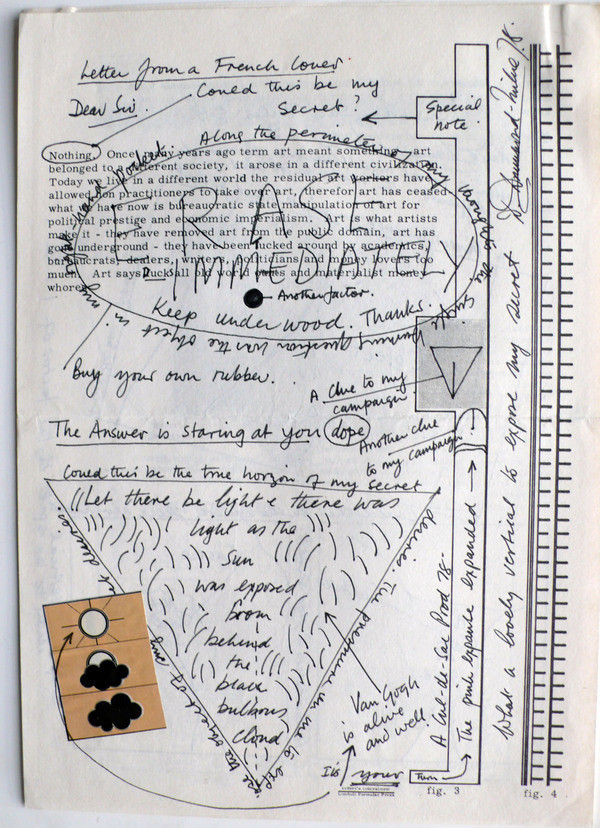 Letter from a French Lover.
Could this be my
Secret?
Dear Sir.
Special
note.
Along the perimeter of my
Nothing. Once many years ago term art meant something, art
belonged to a different society, it arose in a different civilization.
Today we live in a different world the residual art workers have
allowed non practitioners to take over art, therefor art has ceased
what we have now is bureaucratic state manipulation of art for
political prestige and economic imperialism. Art is what artists
make it - they have removed art from the public domain, art has
gone underground - they have been fucked around by academics,
bureaucrats, dealers, writers, politicians and money lovers too
much. Art says fuck all old world and materialist money
whores
ERASE
IMMEDIATELY
Another factor.
Keep under wood. Thanks.
Buy your own rubber.
A clue to my
campaign.
The Answer is staring at you dope
Another clue
to my campaign
Could this be the true horizon of my secret
Let there be light & there was
light as the
Sun
was exposed
from
behind
the
black
bulbous
cloud
Van Gogh
is alive
and well.
It's
your
Turn
fig. 3
fig. 4
A Cul-de-Sac Prod 78.
The pink expanse expanded
What a lovely vertical to expose my secret